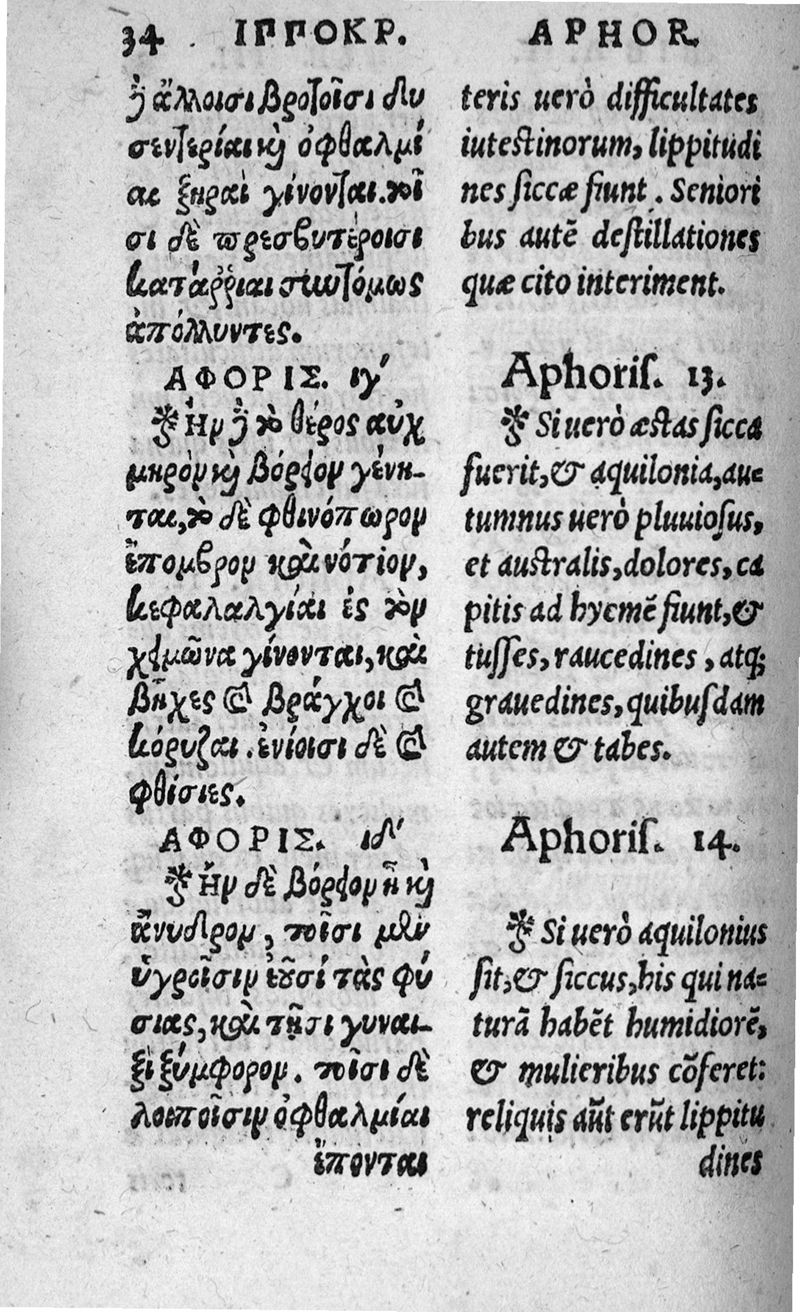 34 ΙΠΠΟΚΡ. APHOR.
δὲ ἄλλοισι βροτοῖσι δυ
σεντερίαι καὶ ὀφθαλμί
αι ξηραὶ γίνονται. τοῖ
σι δὲ πρεσβυτέροισι
κατάῤῥιαι συντόμως
ἀπόλλυντες.
ΑΦΟΡΙΣ. ιγ´
Ἢν δὲ τὸ θέρος αὐχ
μηρὸν καὶ βόρειον γένη-
ται, τὸ δὲ φθινόπωρον
ἔπομβρον καὶ νότιον,
κεφαλαλγίαι ἐς τὸν
χειμῶνα γίνονται, καὶ
βῆχες καὶ βράγχοι καὶ
κόρυζαι. ἐνίοισι δὲ καὶ
φθίσιες.
ΑΦΟΡΙΣ. ιδ´
Ἢν δὲ βόρειον ᾖ καὶ
ἄνυδρον, τοῖσι μὲν
ὑγροῖσιν ἐοῦσί τὰς φύ
σιας, καὶ τῇσι γυναι-
ξὶ ξύμφορον. τοῖσι δὲ
λοιποῖσιν ὀφθαλμίαι
ἕπονται
teris uerò difficultates
iutestinorum, lippitudi
nes siccæ fiunt. Seniori
bus autē destillationes
quæ cito interiment.
Aphoris. 13.
Si uerò æstas sicca
fuerit, & aquilonia, au-
tumnus uerò pluuiosus,
et australis, dolores, ca
pitis ad hyemē fiunt, &
tusses, raucedines, atq;
grauedines, quibusdam
autem & tabes.
Aphoris. 14.
Si uerò aquilonius
sit, & siccus, his qui na-
turā habēt humidiorē,
& mulieribus cōferet:
reliquis aūt erūt lippitu
dines